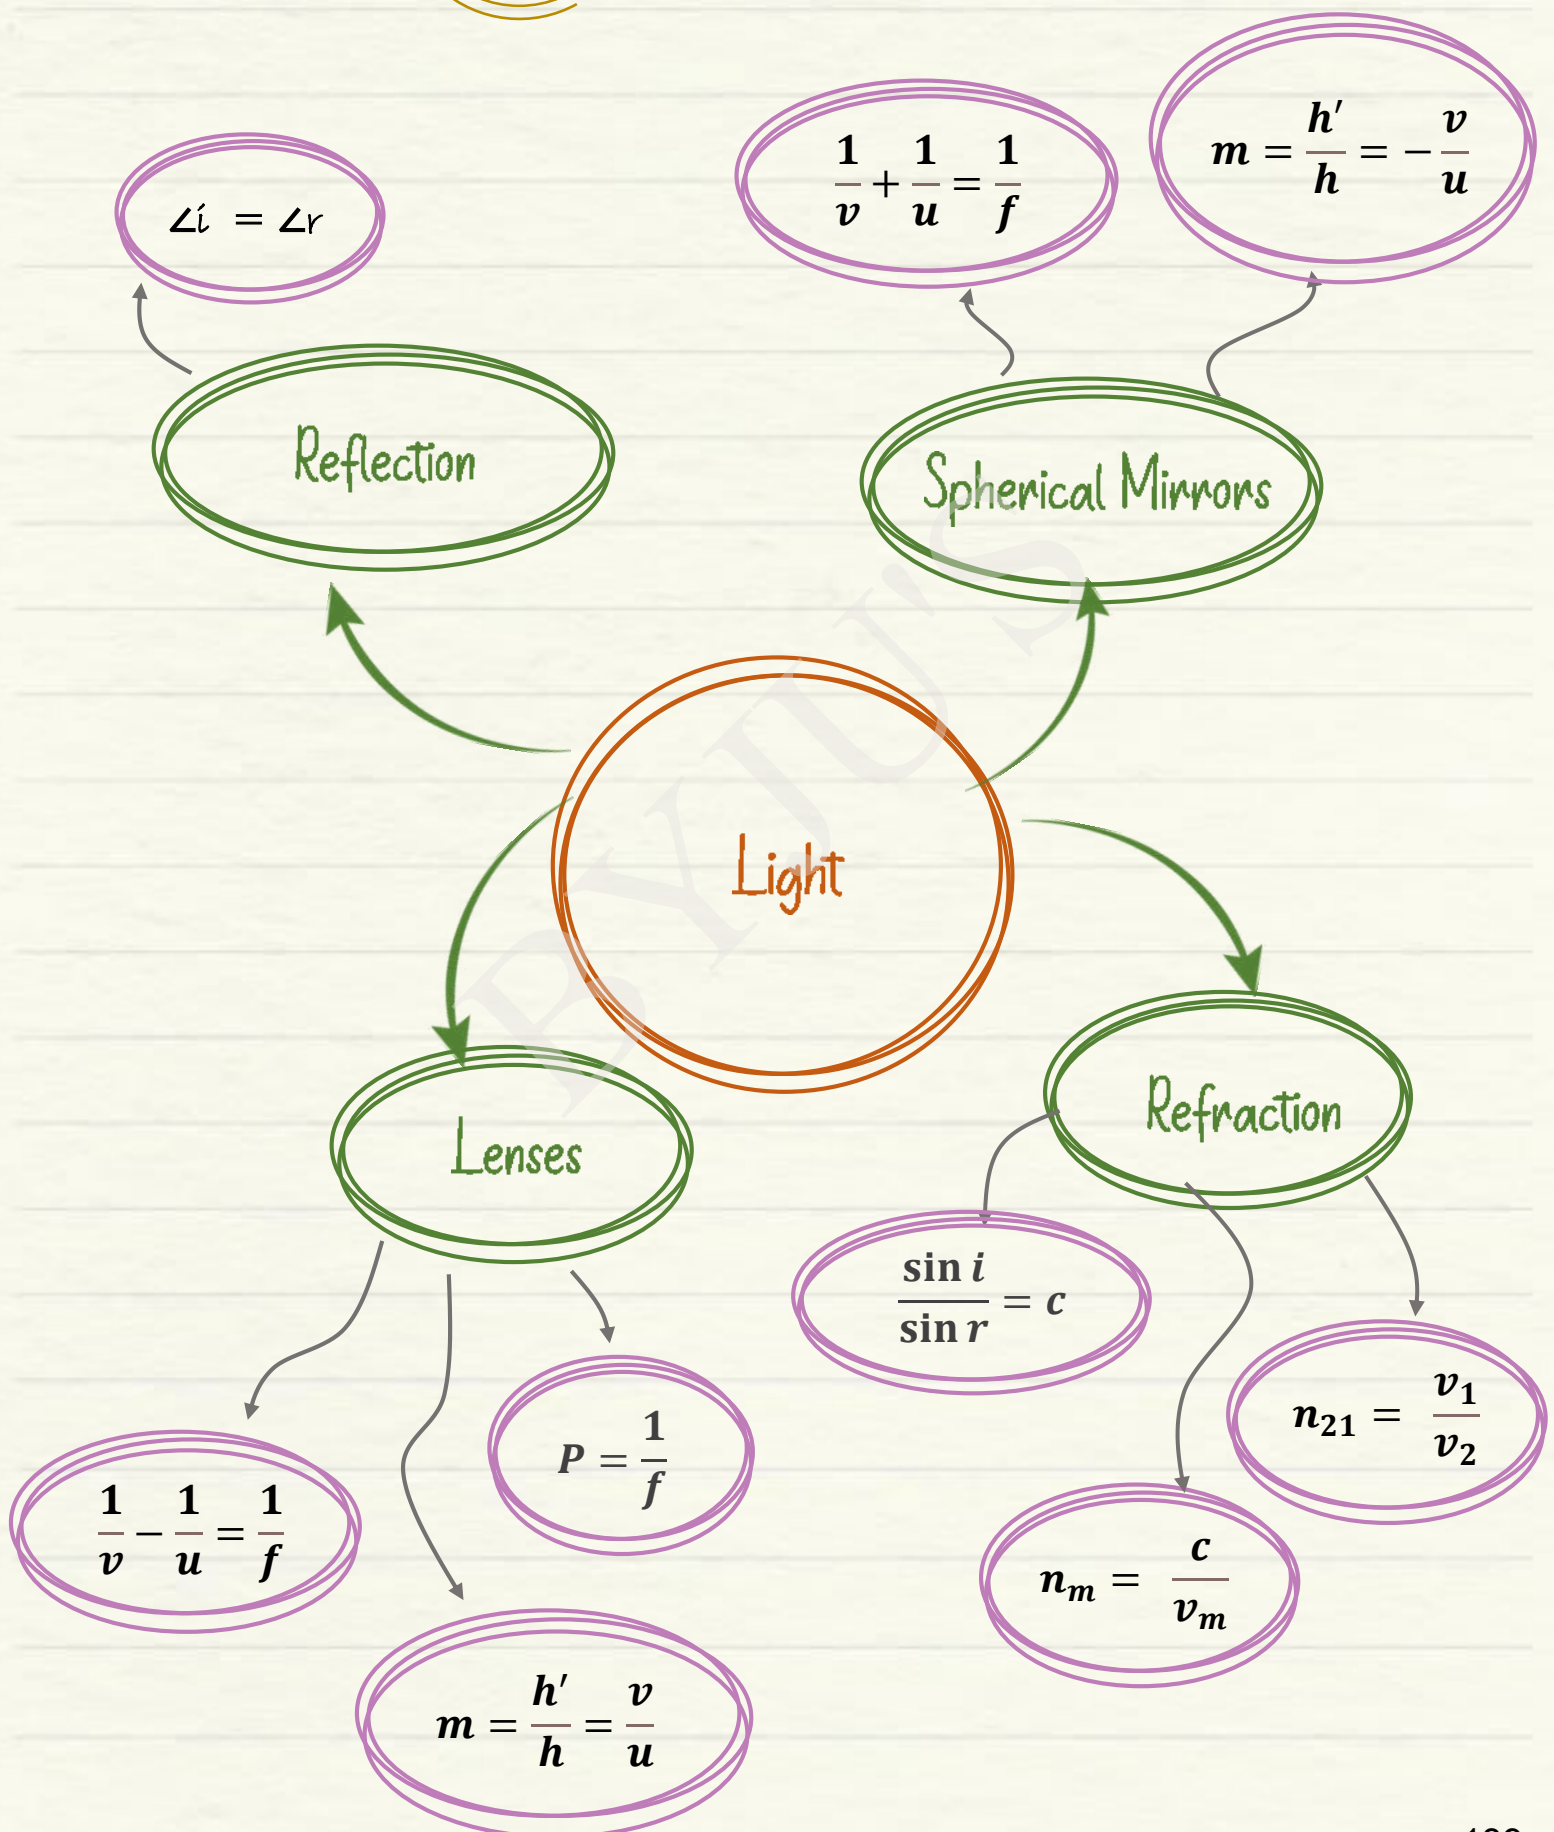 ∠i = ∠r
1/v + 1/u = 1/f
m = h′/h = − v/u
Reflection
Spherical Mirrors
Light
BYJU'S
Lenses
Refraction
sin i/sin r = c
n₂₁ = v₁/v₂
P = 1/f
1/v − 1/u = 1/f
nₘ = c/vₘ
m = h′/h = v/u